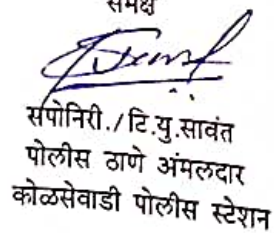 समक्ष
सपोनिरी./टि.यु.सावंत
पोलीस ठाणे अंमलदार
कोळसेवाडी पोलीस स्टेशन